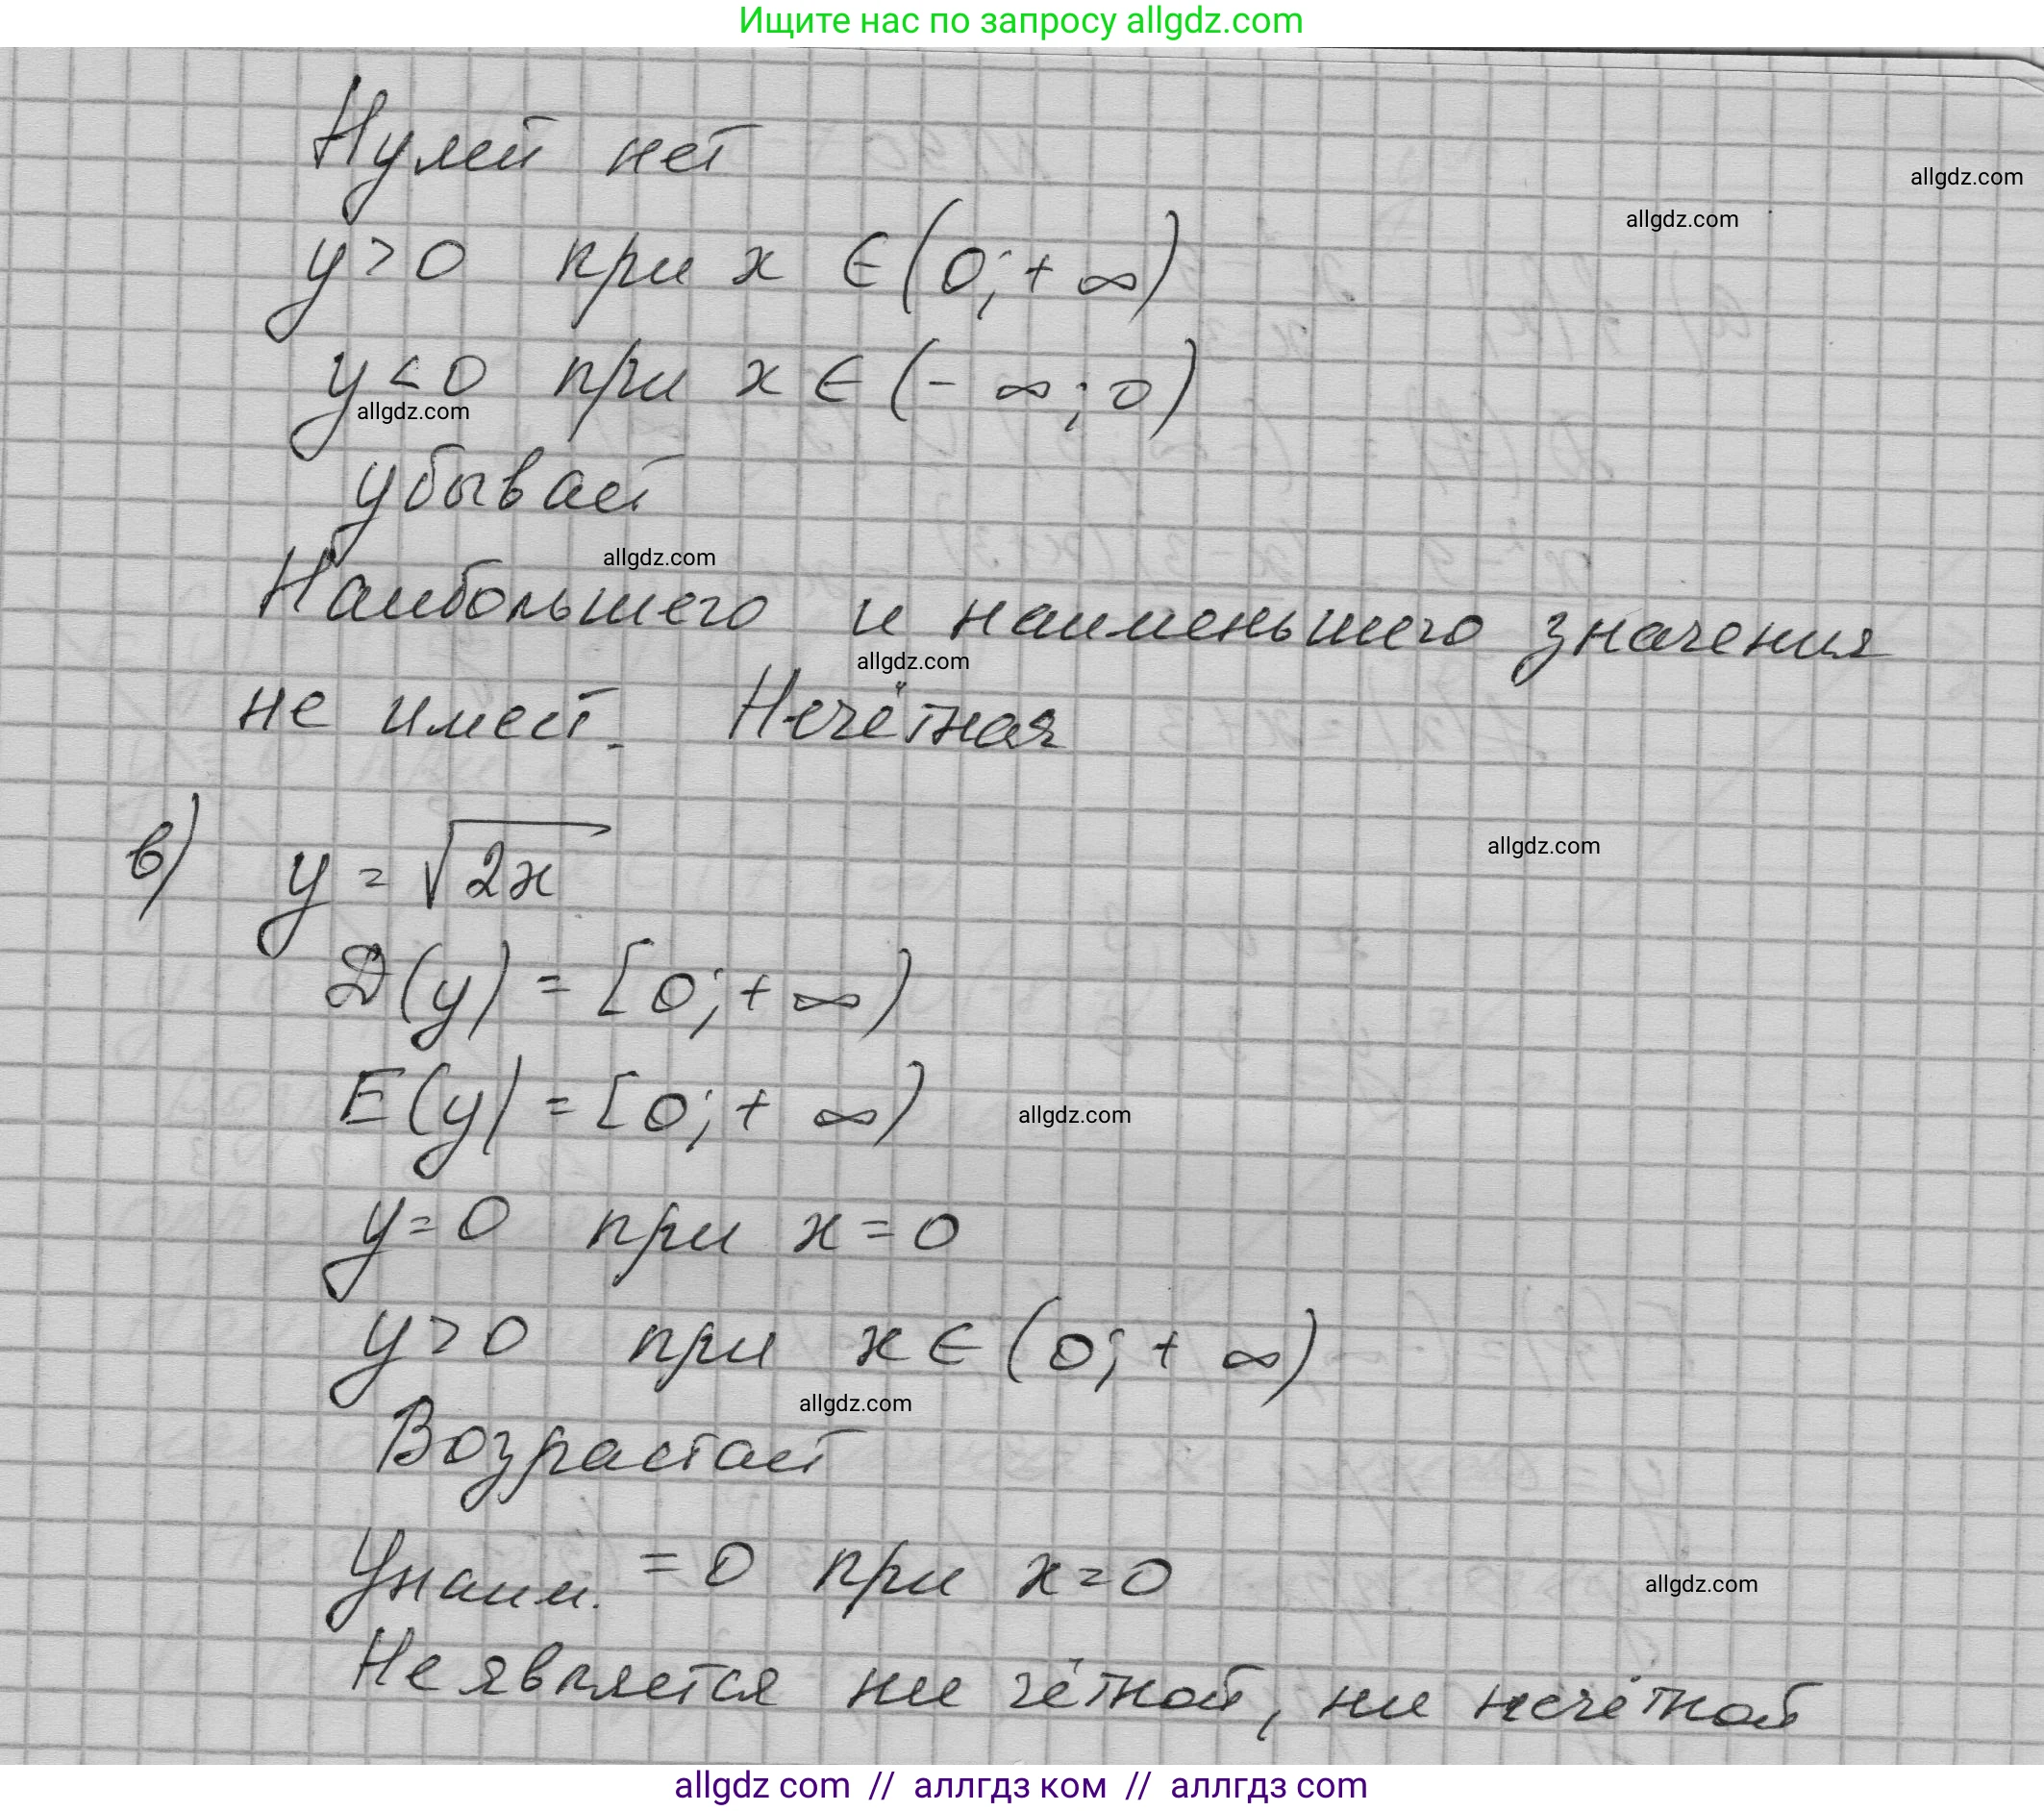 Ищите нас по запросу allgdz.com
Нулей нет
allgdz.com
allgdz.com
y > 0 при x ∈ (0; + ∞)
y < 0 при x ∈ (- ∞; 0)
allgdz.com
убывает
allgdz.com
Наибольшего и наименьшего значения
allgdz.com
не имеет. Нечётная
в) y = √2x
allgdz.com
D(y) = [0; + ∞)
E(y) = [0; + ∞)
allgdz.com
y = 0 при x = 0
y > 0 при x ∈ (0; + ∞)
allgdz.com
Возрастает
yнаим. = 0 при x = 0
allgdz.com
Не является ни чётной, ни нечётной
allgdz com // аллгдз ком // аллгдз com